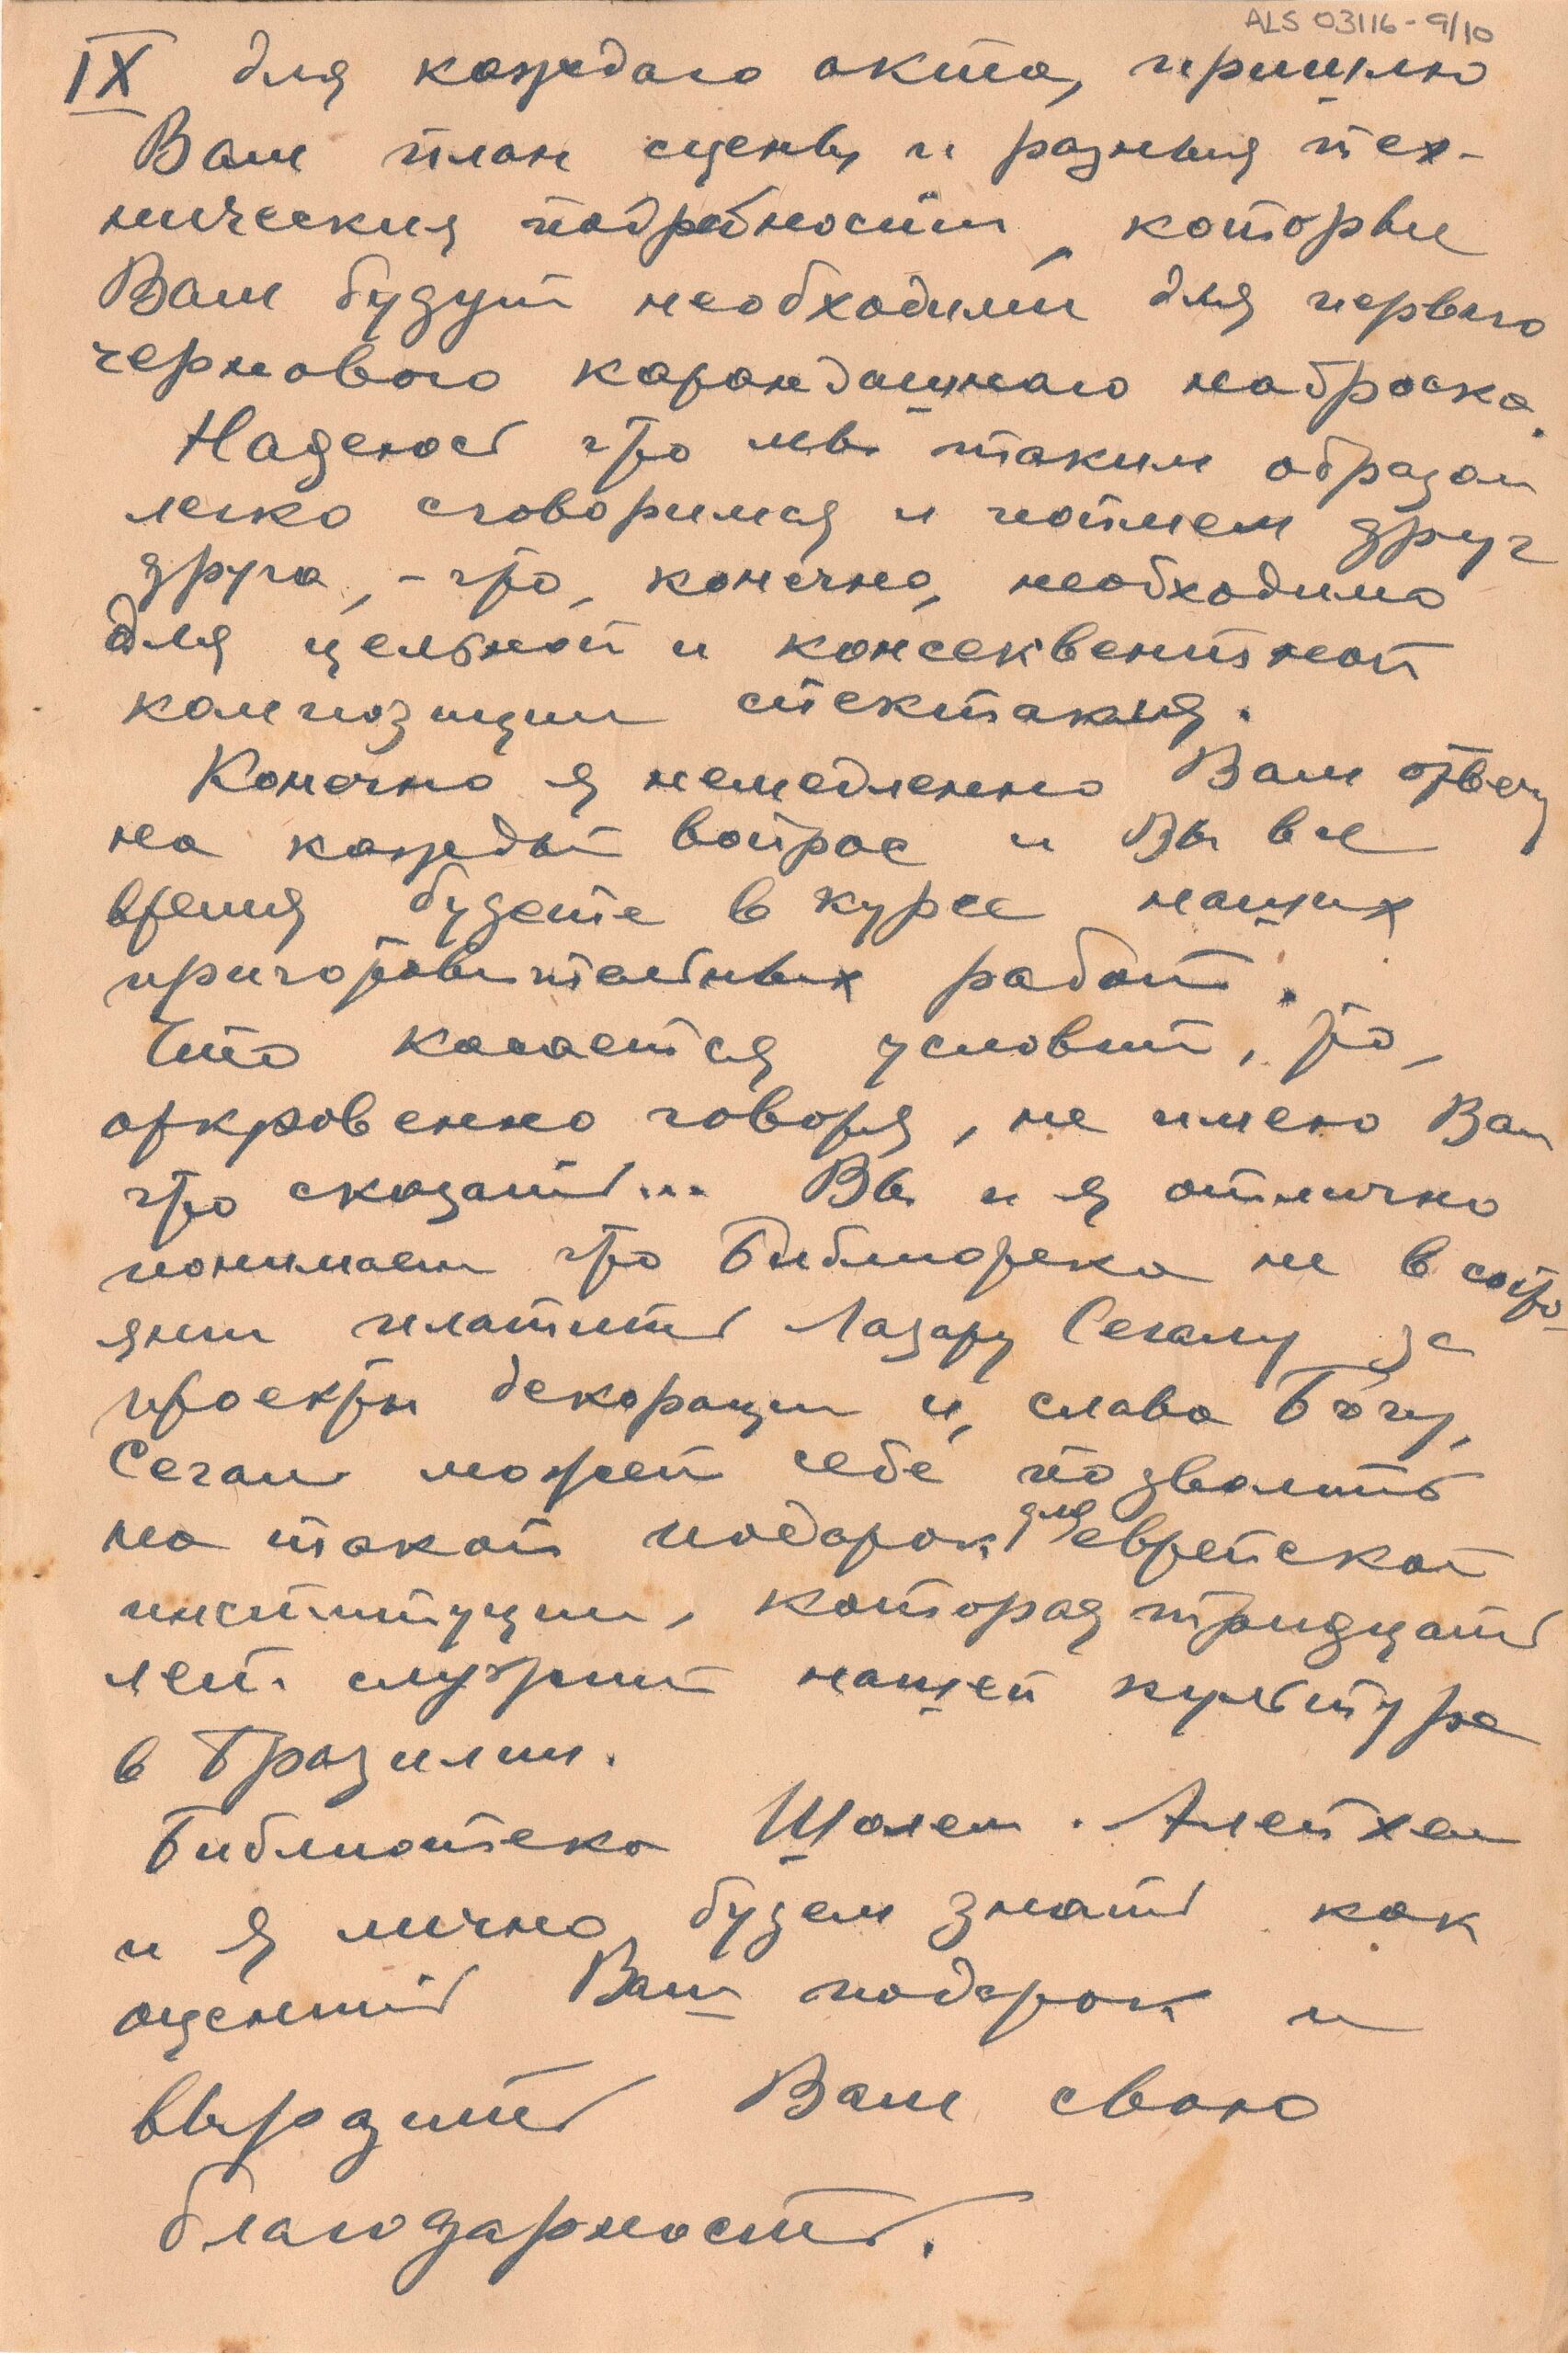 ALS 03116-9/10
IX для каждаго акта, пришлю
Вам план сцены и разныя тех-
ническия подробности, которые
Вам будут необходимы для первого
чернового карандашнаго наброска.
Надеюсь что мы таким образом
легко сговоримся и поймем друг
друга, - что, конечно, необходимо
для цельной и консеквентной
композиции спектакля.
Конечно я немедленно Вам отвечу
на каждый вопрос и Вы все
время будете в курсе наших
приготовительных работ.
Что касается условий, то,
откровенно говоря, не имею Вам
что сказать... Вы и я отлично
понимаем что Библиотека не в состо-
янии платить Лазарю Сегалу за
проекты декорации и, слава Богу,
Сегал может себе позволить
на такой подарок для еврейской
институции, которая тридцать
лет служит нашей культуре
в Бразилии.
Библиотека Шолем-Алейхем
и я лично будем знать как
оценить Ваш подарок и
выразить Вам свою
благодарность.